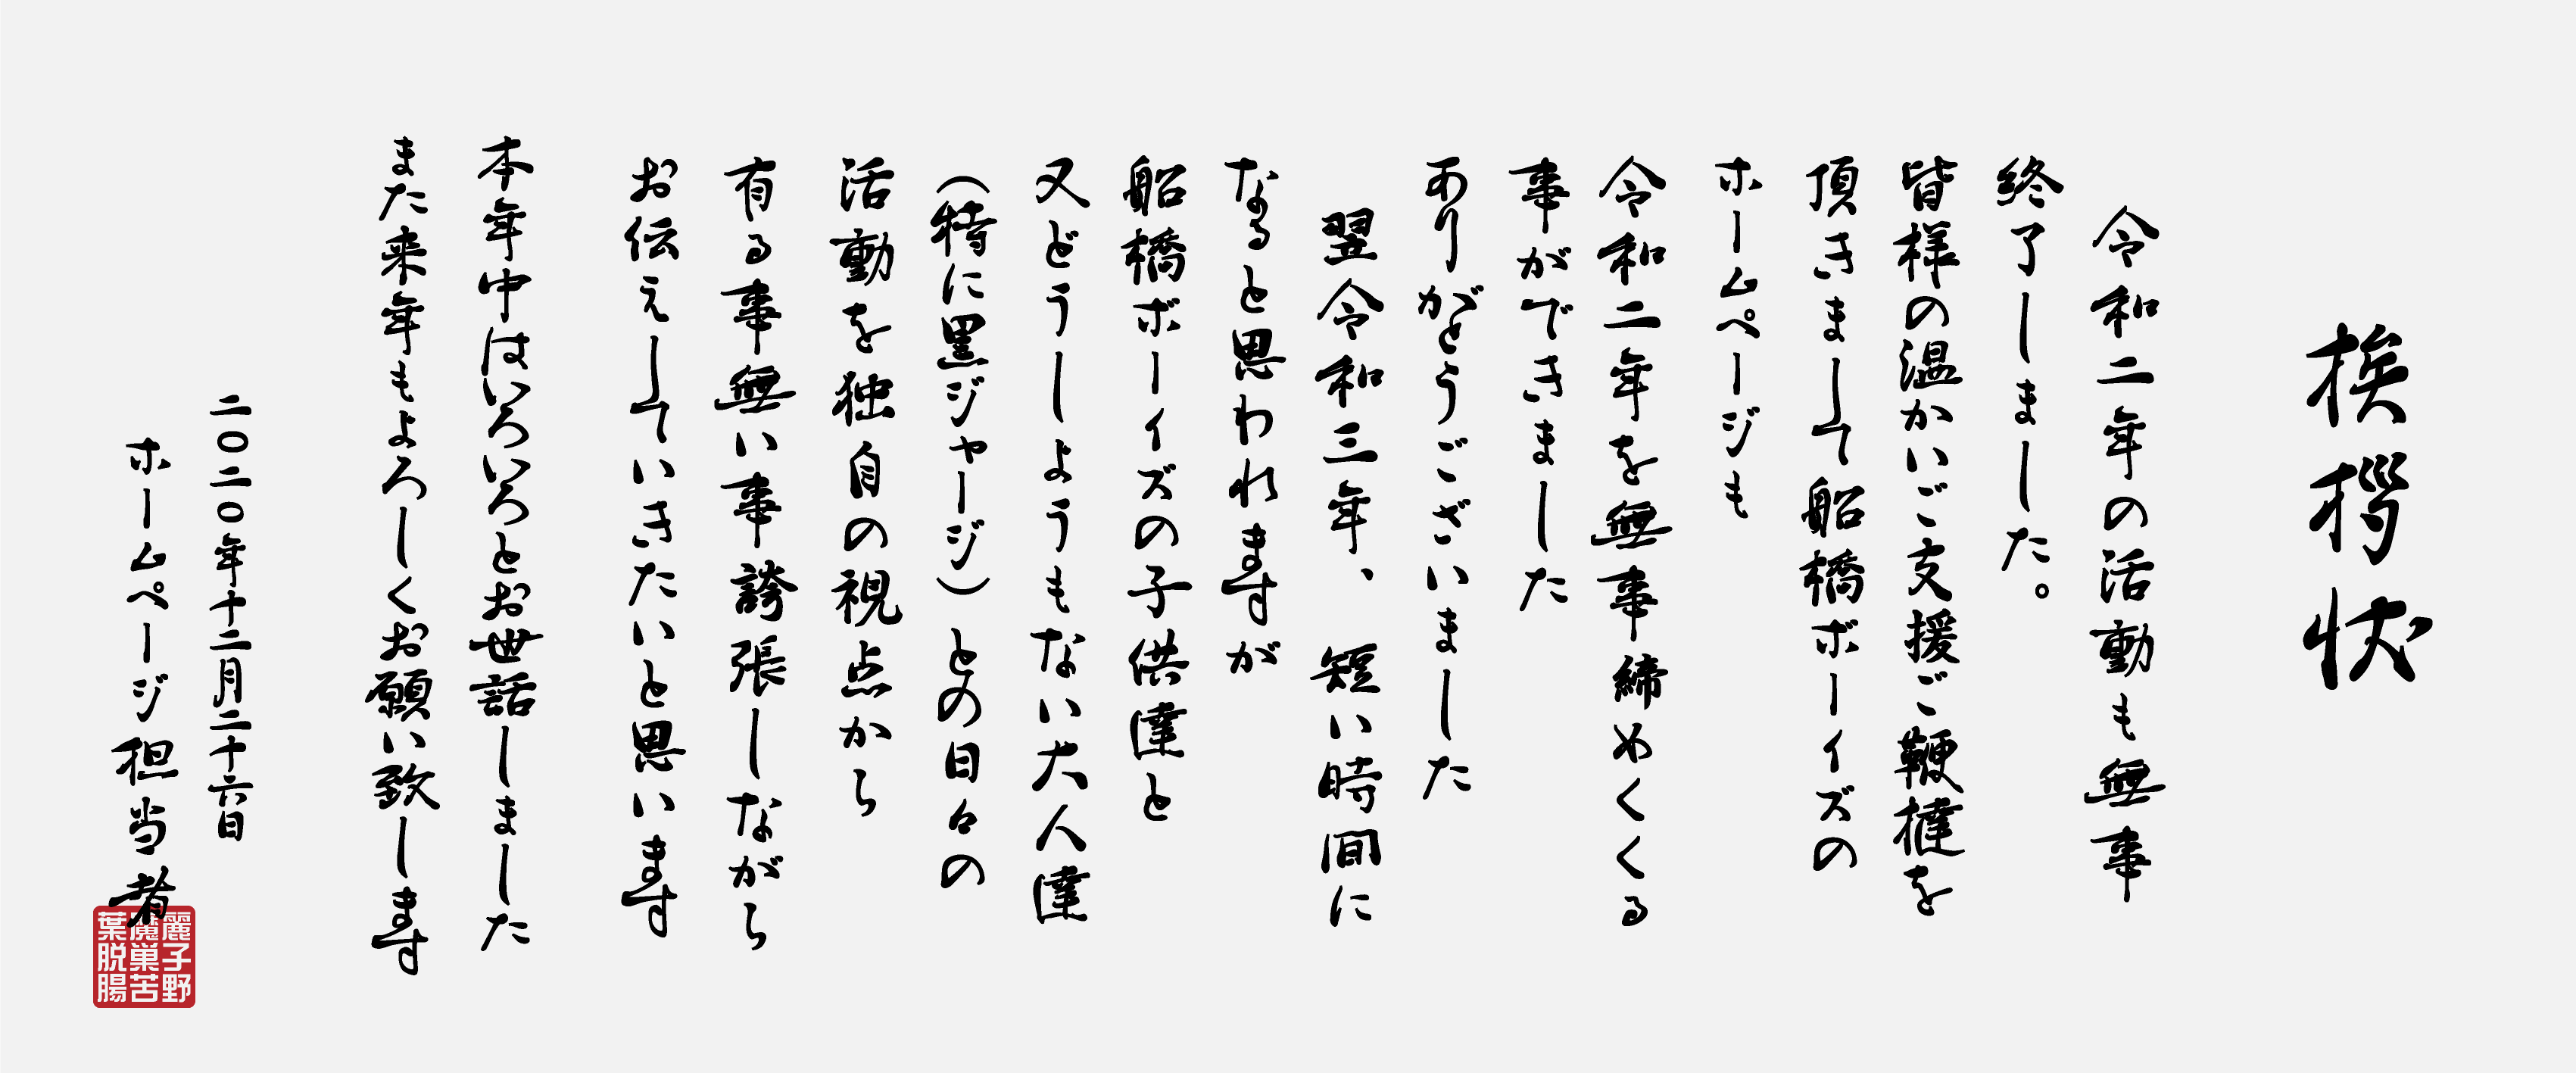 挨拶状
令和二年の活動も無事
終了しました。
皆様の温かいご支援ご鞭撻を
頂きまして船橋ボーイズの
ホームページも
令和二年を無事締めくくる
事ができました
ありがとうございました
翌令和三年、短い時間に
なると思われますが
船橋ボーイズの子供達と
又どうしようもない大人達
(特に黒ジャージ)との日々の
活動を独自の視点から
有る事無い事誇張しながら
お伝えしていきたいと思います
本年中はいろいろとお世話しました
また来年もよろしくお願い致します
二〇二〇年十二月二十六日
ホームページ担当者
麗子野
魔巣苦
葉脱腸